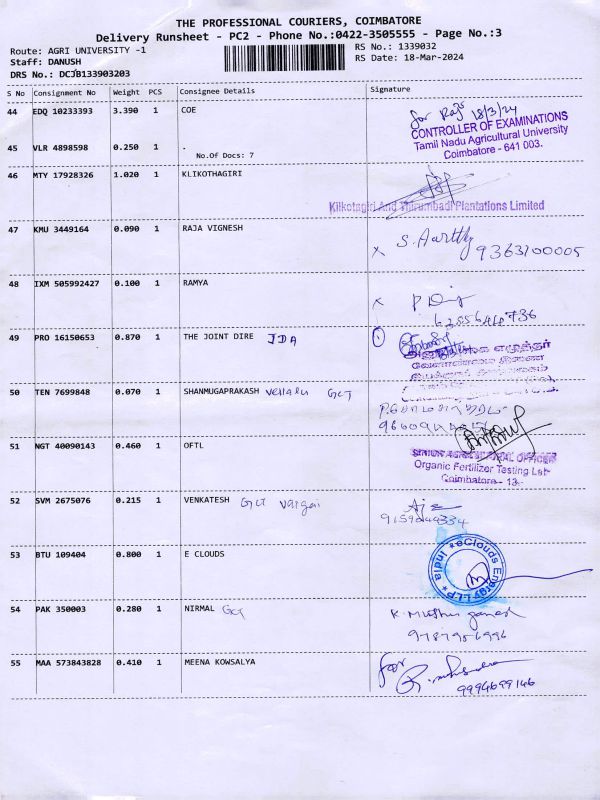 THE PROFESSIONAL COURIERS, COIMBATORE
Delivery Runsheet - PC2 - Phone No.:0422-3505555 - Page No.:3
Route: AGRI UNIVERSITY -1
RS No.: 1339032
Staff: DANUSH
RS Date: 18-Mar-2024
DRS No.: DCJB133903203
S No Consignment No Weight PCS Consignee Details Signature
44 EDQ 10233393 3.390 1 COE
for Raj 18/3/24
CONTROLLER OF EXAMINATIONS
Tamil Nadu Agricultural University
Coimbatore - 641 003.
45 VLR 4898598 0.250 1 .
No.Of Docs: 7
46 MTY 17928326 1.020 1 KLIKOTHAGIRI
Kilkotagiri And Thirumbadi Plantations Limited
47 KMU 3449164 0.090 1 RAJA VIGNESH
x S. Aarthy 9363100005
48 IXM 505992427 0.100 1 RAMYA
x
49 PRO 16150653 0.870 1 THE JOINT DIRE JDA
50 TEN 7699848 0.070 1 SHANMUGAPRAKASH GCT
51 NGT 40090143 0.460 1 OFTL
SENIOR AGRICULTURAL OFFICER
Organic Fertilizer Testing Lab
Coimbatore - 13
52 SVM 2675076 0.215 1 VENKATESH GCT Vargai
53 BTU 109404 0.800 1 E CLOUDS
eClouds Energy LLP * India *
54 PAK 350003 0.280 1 NIRMAL GCT
K. Muthu ganesh
55 MAA 573843828 0.410 1 MEENA KOWSALYA
for
9994699146